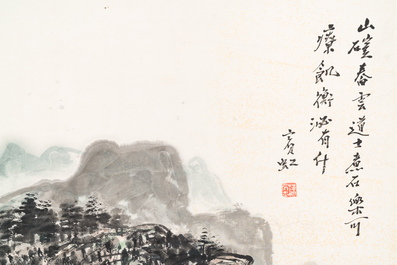 山磴春雲道士煮石樂可
療飢衡泌有什
賓虹